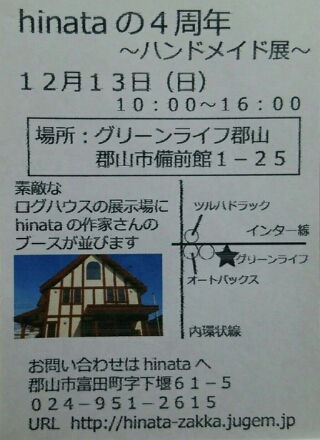 hinataの４周年
～ハンドメイド展～
１２月１３日（日）
１０：００～１６：００
場所：グリーンライフ郡山
郡山市備前館１－２５
素敵な
ログハウスの展示場に
hinataの作家さんの
ブースが並びます
ツルハドラック
インター線
グリーンライフ
オートバックス
内環状線
お問い合わせはhinataへ
郡山市富田町字下堰６１－５
０２４－９５１－２６１５
URL http://hinata-zakka.jugem.jp